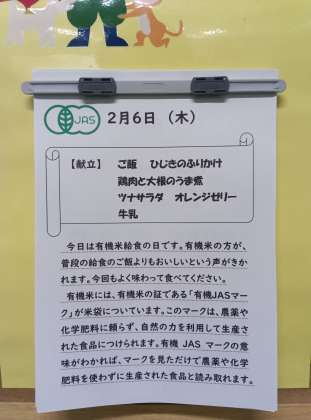 JAS 2月6日（木）
【献立】 ご飯 ひじきのふりかけ
鶏肉と大根のうま煮
ツナサラダ オレンジゼリー
牛乳
今日は有機米給食の日です。有機米の方が、
普段の給食のご飯よりもおいしいという声がきか
れます。今回もよく味わって食べてください。
有機米には、有機米の証である「有機JASマー
ク」が米袋についています。このマークは、農薬や
化学肥料に頼らず、自然の力を利用して生産さ
れた食品につけられます。有機 JAS マークの意
味がわかれば、マークを見ただけで農薬や化学
肥料を使わずに生産された食品と読み取れます。